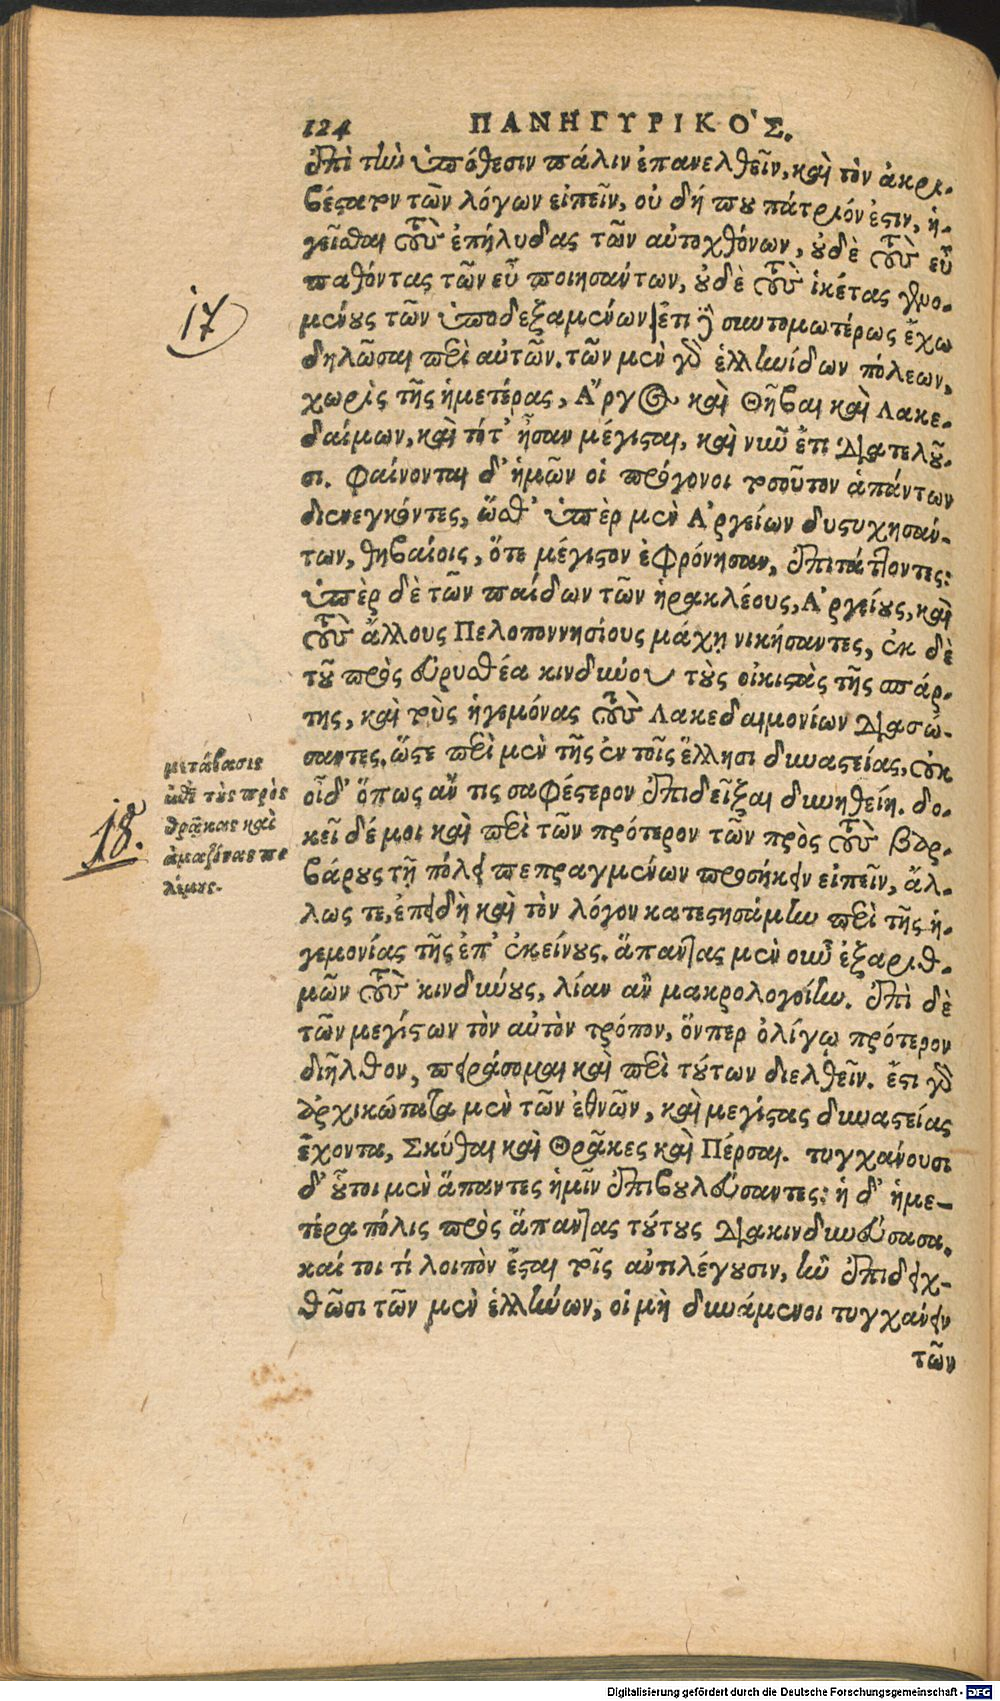 124 ΠΑΝΗΓΥΡΙΚΟ'Σ.
ἐπὶ τὴν ὑπόθεσιν πάλιν ἐπανελθεῖν, καὶ τὸν ἀκρι-
βέστατον τῶν λόγων εἰπεῖν, οὐ δή που πάτριόν ἐστιν, ἡ-
γεῖσθαι τοὺς ἐπήλυδας τῶν αὐτοχθόνων, οὐδὲ τοὺς εὖ
παθόντας τῶν εὖ ποιησάντων, οὐδὲ τοὺς ἱκέτας γενο-
μένους τῶν ὑποδεξαμένων|ἔτι δὲ συντομωτέρως ἔχω
17
δηλῶσαι περὶ αὐτῶν. τῶν μὲν γὰρ ἑλληνίδων πόλεων,
χωρὶς τῆς ἡμετέρας, Ἄργος καὶ Θῆβαι καὶ Λακε-
δαίμων, καὶ τότ' ἦσαν μέγισται, καὶ νῦν ἔτι διατελοῦ-
σι. φαίνονται δ' ἡμῶν οἱ πρόγονοι τοσοῦτον ἁπάντων
διενεγκόντες, ὥσθ' ὑπὲρ μὲν Ἀργείων δυστυχησάν-
των, θηβαίοις, ὅτε μέγιστον ἐφρόνησαν, ἐπιτάττοντες:
ὑπὲρ δὲ τῶν παίδων τῶν ἡρακλέους, Ἀργείους, καὶ
τοὺς ἄλλους Πελοποννησίους μάχῃ νικήσαντες, ἐκ δὲ
τοῦ πρὸς εὐρυσθέα κινδύνου τοὺς οἰκιστὰς τῆς σπάρ-
της, καὶ τοὺς ἡγεμόνας τοὺς Λακεδαιμονίων διασώ-
σαντες. ὥστε περὶ μὲν τῆς ἐν τοῖς ἕλλησι δυναστείας, οὐκ
οἶδ' ὅπως ἄν τις σαφέστερον ἐπιδεῖξαι δυνηθείη. δο-
μετάβασις
ἐπὶ τοὺς πρὸς
θρᾷκας καὶ
ἀμαζόνας πο
λέμους.
18.
κεῖ δέ μοι καὶ περὶ τῶν πρότερον τῶν πρὸς τοὺς βαρ-
βάρους τῇ πόλει πεπραγμένων προσήκειν εἰπεῖν, ἄλ-
λως τε, ἐπειδὴ καὶ τὸν λόγον κατεστησάμην περὶ τῆς ἡ-
γεμονίας τῆς ἐπ' ἐκείνους. ἅπαντας μὲν οὖν ἐξαριθ-
μῶν τοὺς κινδύνους, λίαν ἂν μακρολογοίην. ἐπὶ δὲ
τῶν μεγίστων τὸν αὐτὸν τρόπον, ὅνπερ ὀλίγῳ πρότερον
διῆλθον, πειράσομαι καὶ περὶ τούτων διελθεῖν. ἔστι γὰρ
ἀρχικώτατα μὲν τῶν ἐθνῶν, καὶ μεγίστας δυναστείας
ἔχοντα, Σκύθαι καὶ Θρᾷκες καὶ Πέρσαι. τυγχάνουσι
δ' οὗτοι μὲν ἅπαντες ἡμῖν ἐπιβουλεύσαντες: ἡ δ' ἡμε-
τέρα πόλις πρὸς ἅπαντας τούτους διακινδυνεύσασα.
καί τοι τί λοιπὸν ἔσται τοῖς ἀντιλέγουσιν, ἢν ἐπιδειχ-
θῶσι τῶν μὲν ἑλλήνων, οἱ μὴ δυνάμενοι τυγχάνειν
τῶν
Digitalisierung gefördert durch die Deutsche Forschungsgemeinschaft - DFG